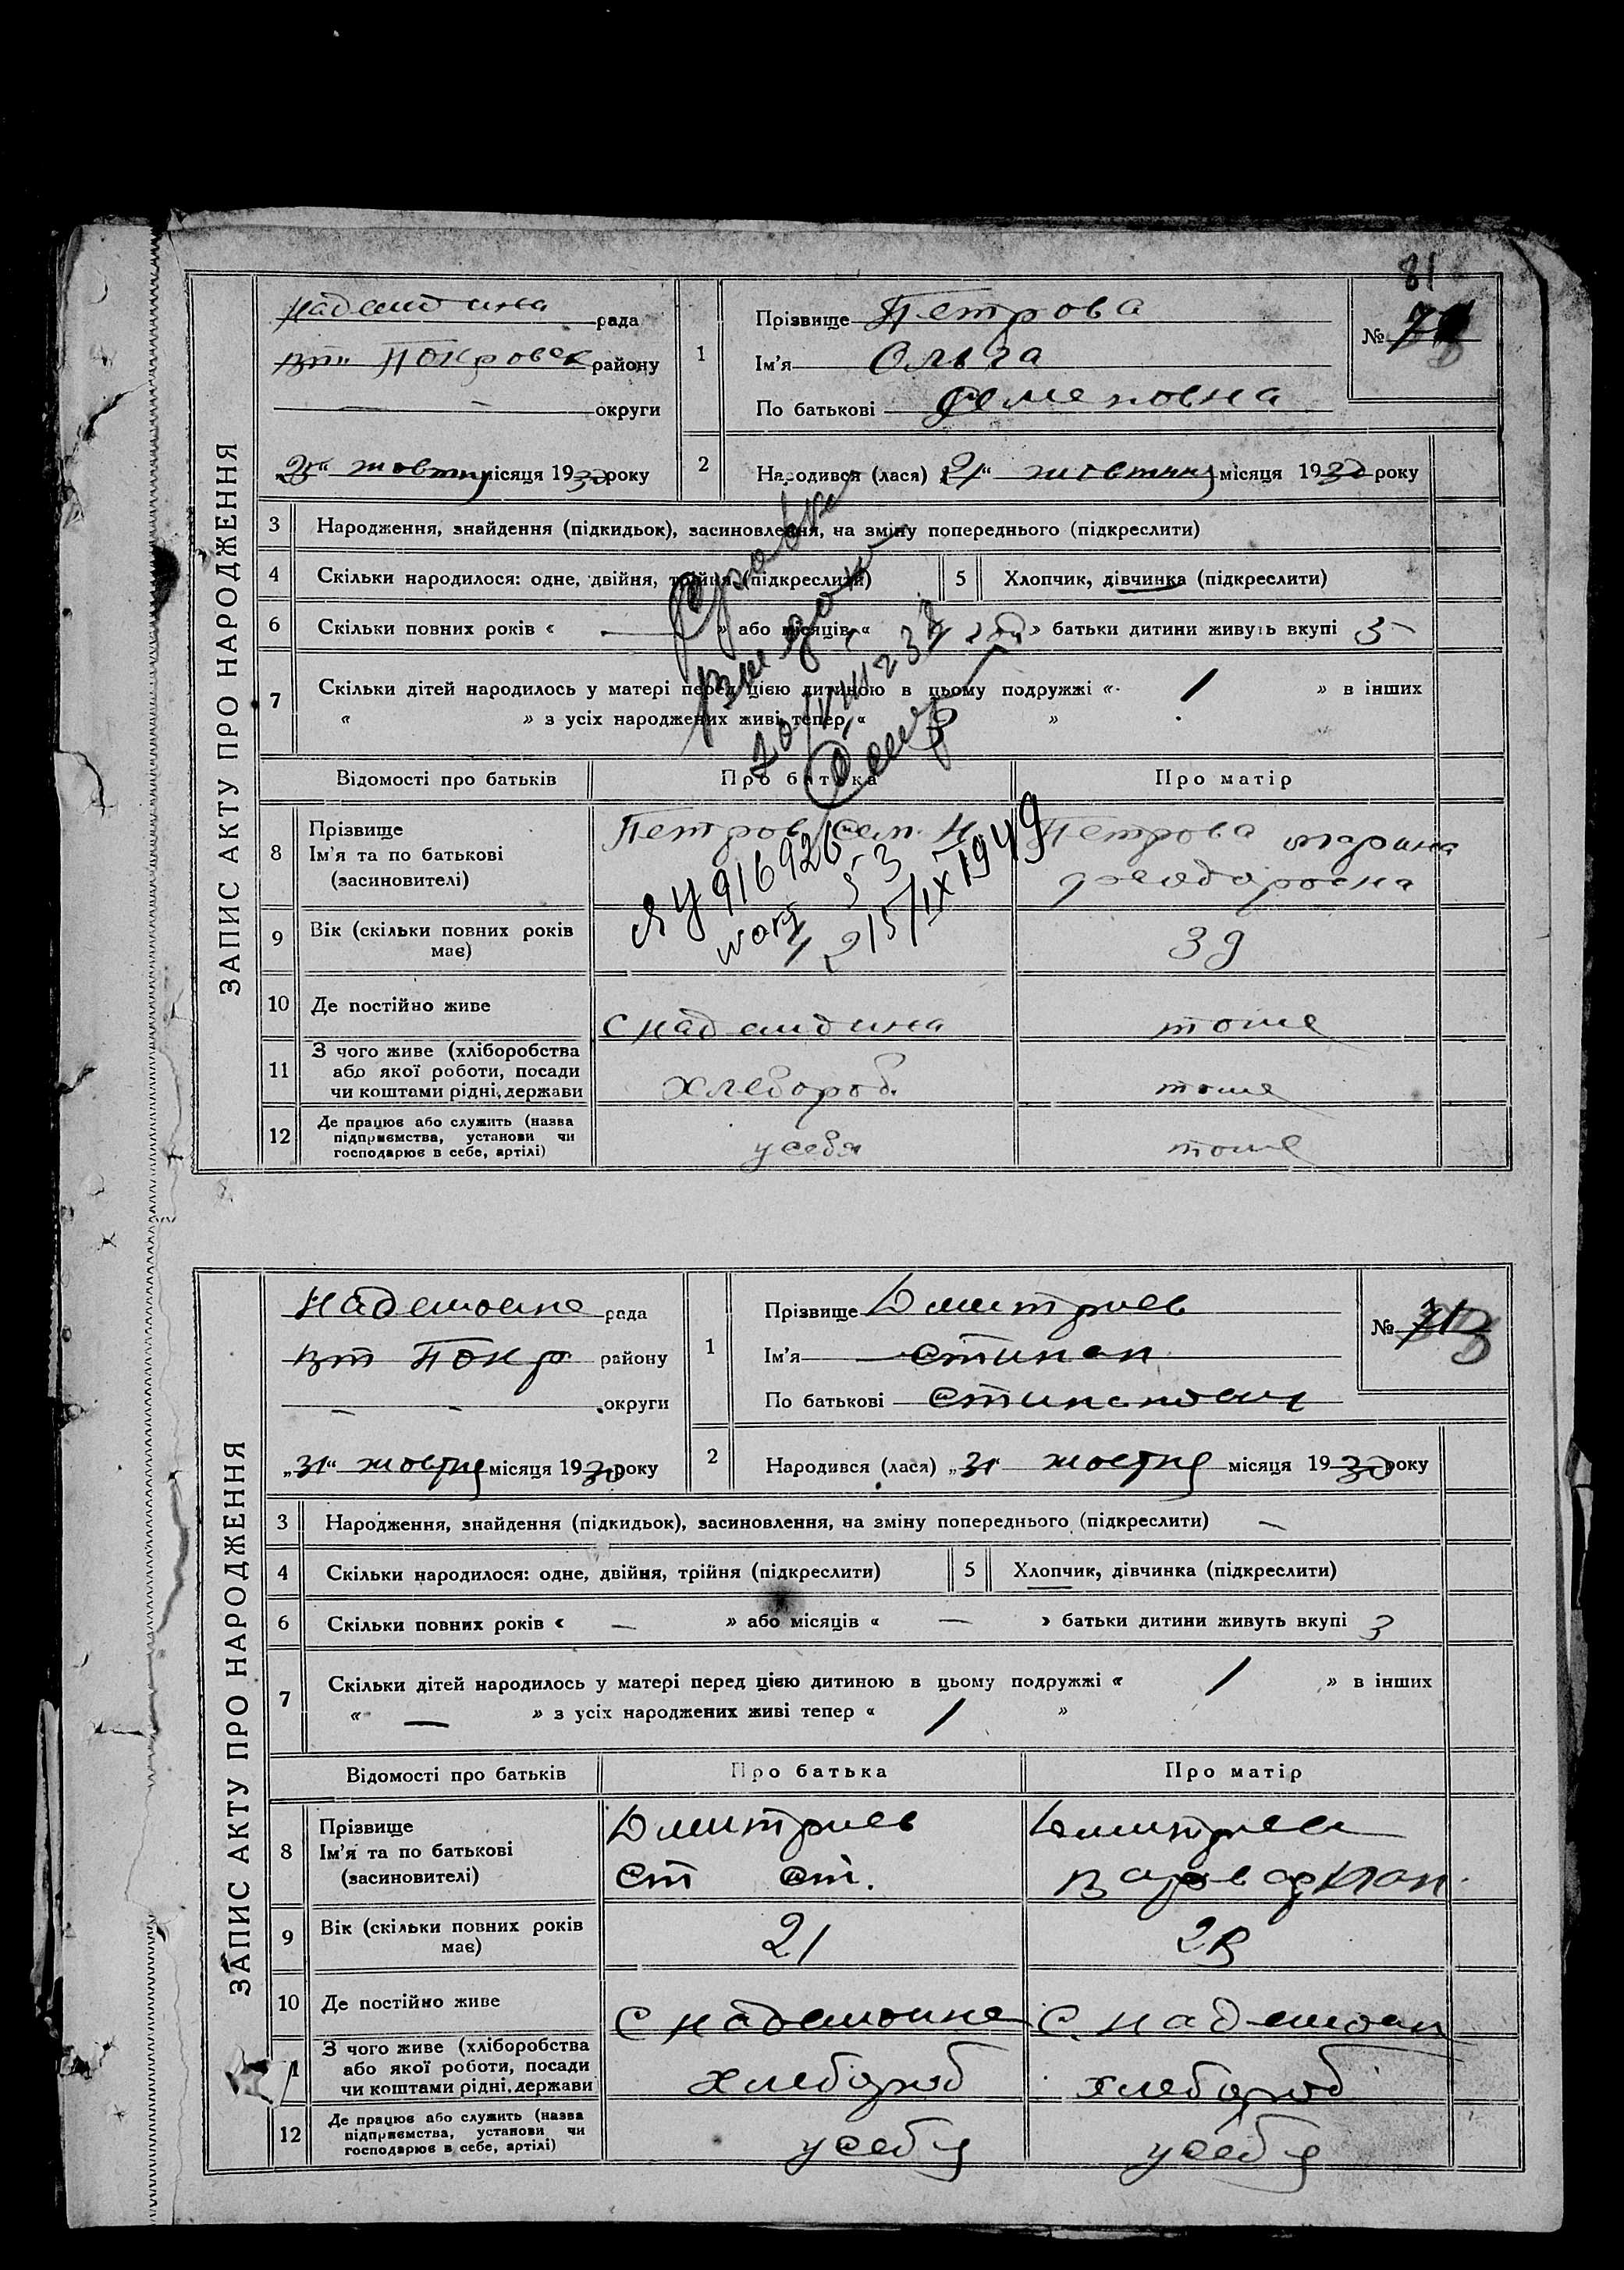 81
ЗАПИС АКТУ ПРО НАРОДЖЕННЯ
рада
Покровск району
округи
1
Прізвище Петрова
Ім'я Ольга
По батькові Семеновна
№
місяця 1930 року
2
Народився (лася) „21“ жовтня місяця 1930 року
3 Народження, знайдення (підкидьок), засиновлення, на зміну попереднього (підкреслити)
4 Скільки народилося: одне, двійня, трійня (підкреслити)
5 Хлопчик, дівчинка (підкреслити)
6 Скільки повних років « — » або місяців « » батьки дитини живуть вкупі 5
7 Скільки дітей народилось у матері перед цією дитиною в цьому подружжі « 1 » в інших
« » з усіх народжених живі тепер « »
Справка
видана
ЯУ 916926
15/IX 1949
Відомості про батьків
Про батька
Про матір
8 Прізвище
Ім'я та по батькові
(засиновителі)
Петров Сем. Н.
Петрова Марина
Феодоровна
9 Вік (скільки повних років
має)
39
10 Де постійно живе
С
тоже
11 З чого живе (хліборобства
або якої роботи, посади
чи коштами рідні, держави
хлебороб.
тоже
12 Де працює або служить (назва
підприємства, установи чи
господарює в себе, артілі)
у себя
тоже
ЗАПИС АКТУ ПРО НАРОДЖЕННЯ
рада
вт Покр району
— — округи
1
Прізвище Дмитриев
Ім'я Стипан
По батькові Стипанович
№ 71
„31“ жовтня місяця 1930 року
2
Народився (лася) „31“ жовтня місяця 1930 року
3 Народження, знайдення (підкидьок), засиновлення, на зміну попереднього (підкреслити) —
4 Скільки народилося: одне, двійня, трійня (підкреслити)
5 Хлопчик, дівчинка (підкреслити)
6 Скільки повних років « — » або місяців « — » батьки дитини живуть вкупі 3
7 Скільки дітей народилось у матері перед цією дитиною в цьому подружжі « 1 » в інших
« — » з усіх народжених живі тепер « 1 »
Відомості про батьків
Про батька
Про матір
8 Прізвище
Ім'я та по батькові
(засиновителі)
Дмитриев
Ст Ст.
Дмитриев
9 Вік (скільки повних років
має)
21
10 Де постійно живе
С
С.
1 З чого живе (хліборобства
або якої роботи, посади
чи коштами рідні, держави
хлебороб
хлебороб
12 Де працює або служить (назва
підприємства, установи чи
господарює в себе, артілі)
у себя
у себя